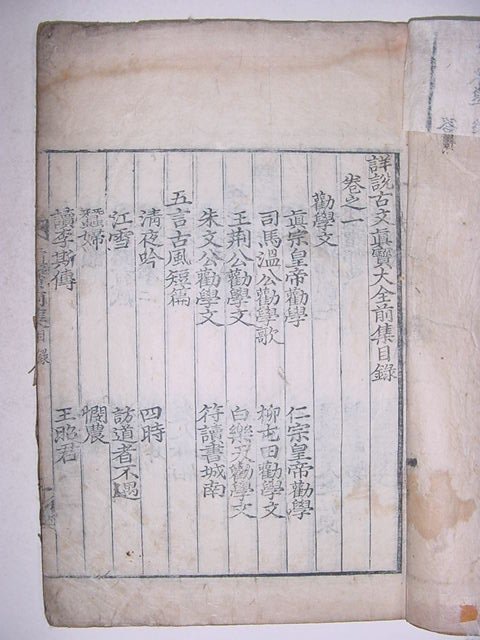 詳說古文眞寶大全前集目錄
卷之一
勸學文
眞宗皇帝勸學 仁宗皇帝勸學
司馬溫公勸學歌 柳屯田勸學文
王荆公勸學文 白樂天勸學文
朱文公勸學文 符讀書城南
五言古風短篇
淸夜吟 四時
江雪 訪道者不遇
蠶婦 憫農
讀李斯傳 王昭君